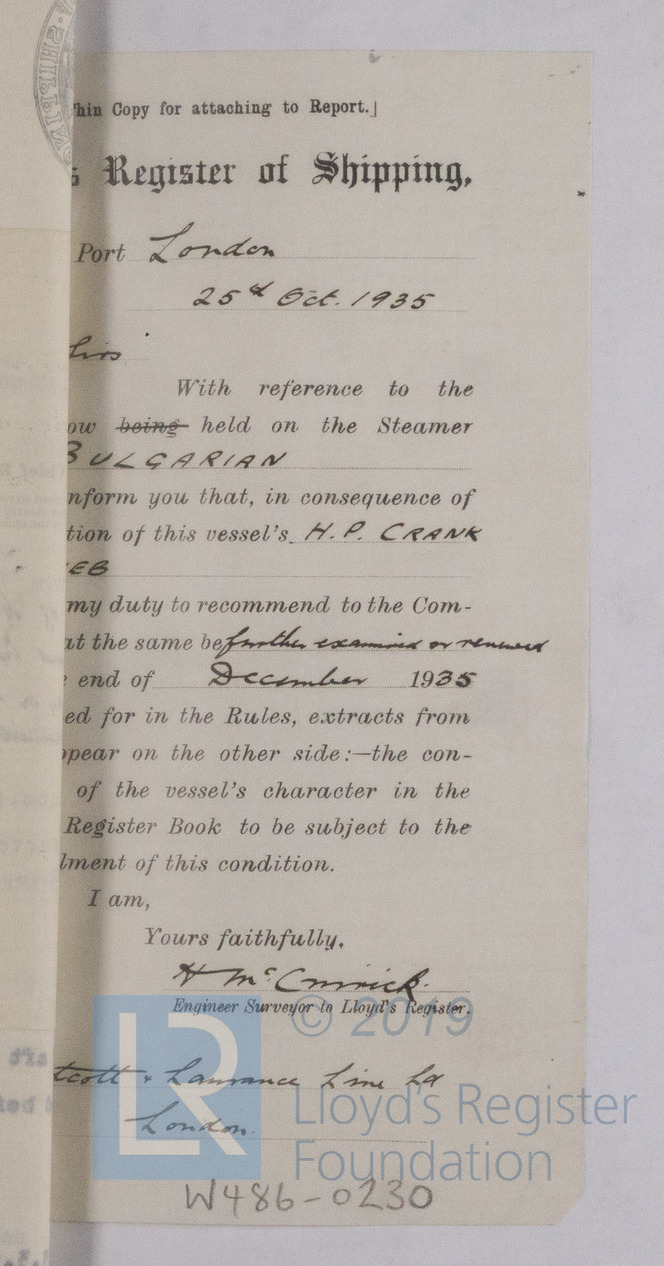 hin Copy for attaching to Report.]
s Register of Shipping,
Port London
25th Oct. 1935
With reference to the
ow being held on the Steamer
BULGARIAN
nform you that, in consequence of
tion of this vessel's H.P. CRANK
EB
my duty to recommend to the Com-
at the same be further examined or renewed
end of December 1935
ed for in the Rules, extracts from
ppear on the other side:—the con-
of the vessel's character in the
Register Book to be subject to the
lment of this condition.
I am,
Yours faithfully,
Engineer Surveyor to Lloyd's Register.
© 2019
LR
tcott & Laurance Line Ld
Lloyd's Register
London.
Foundation
W486-0230